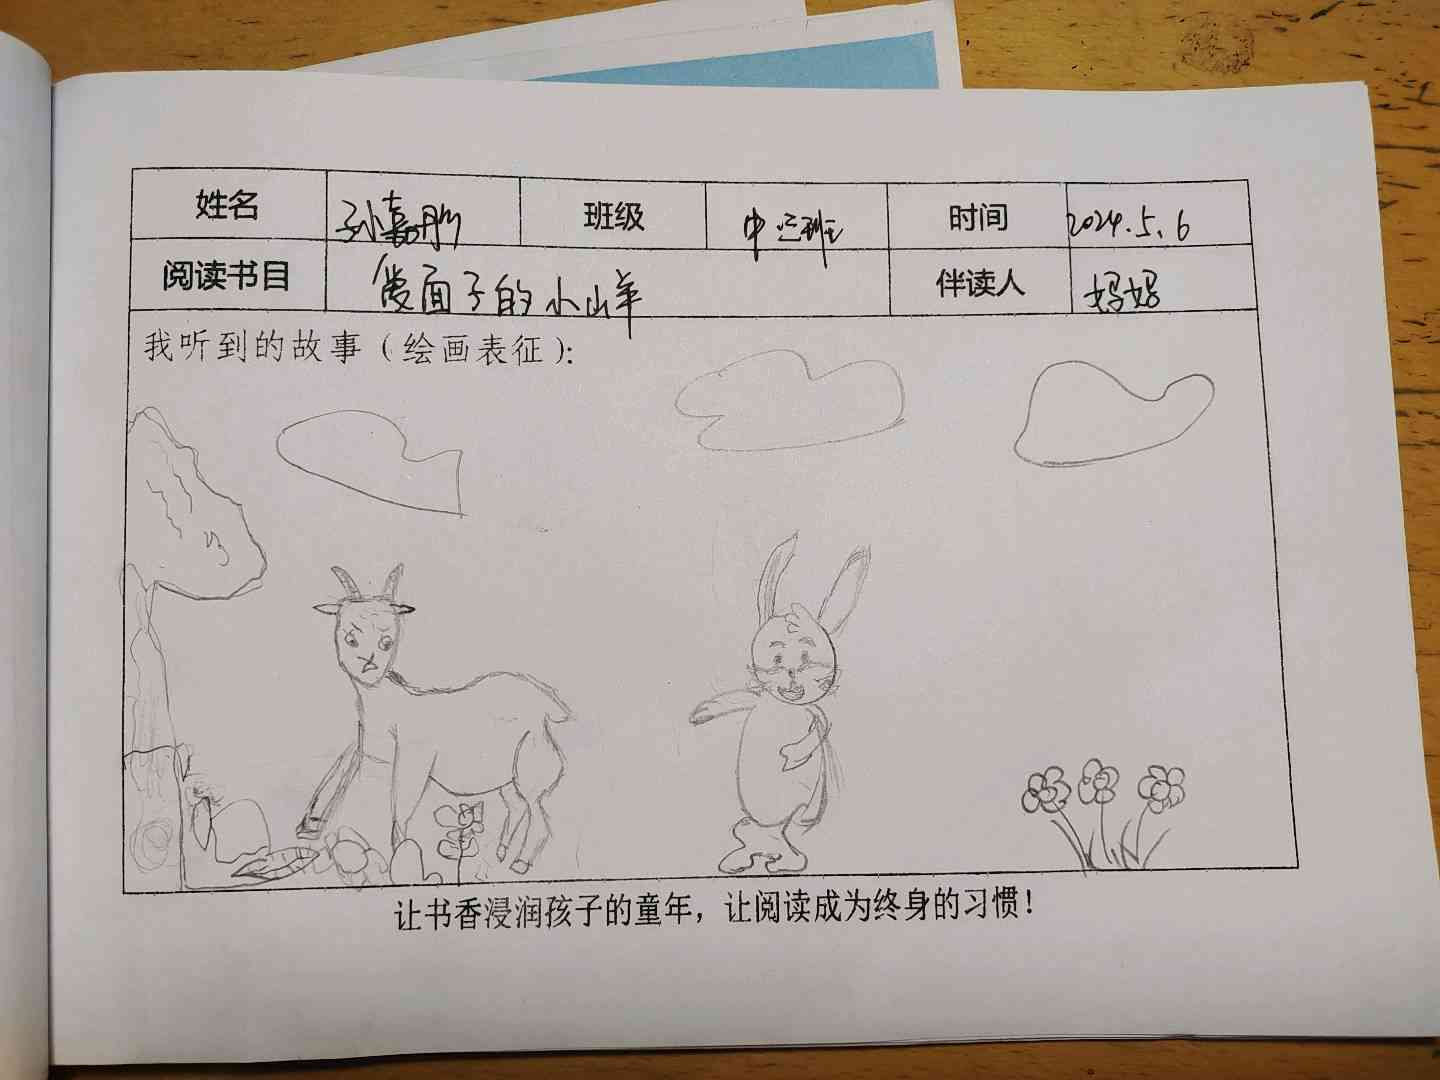 姓名 孙嘉彤 班级 中三班 时间 2024.5.6
阅读书目 爱面子的小山羊 伴读人 妈妈
我听到的故事（绘画表征）：
让书香浸润孩子的童年，让阅读成为终身的习惯！